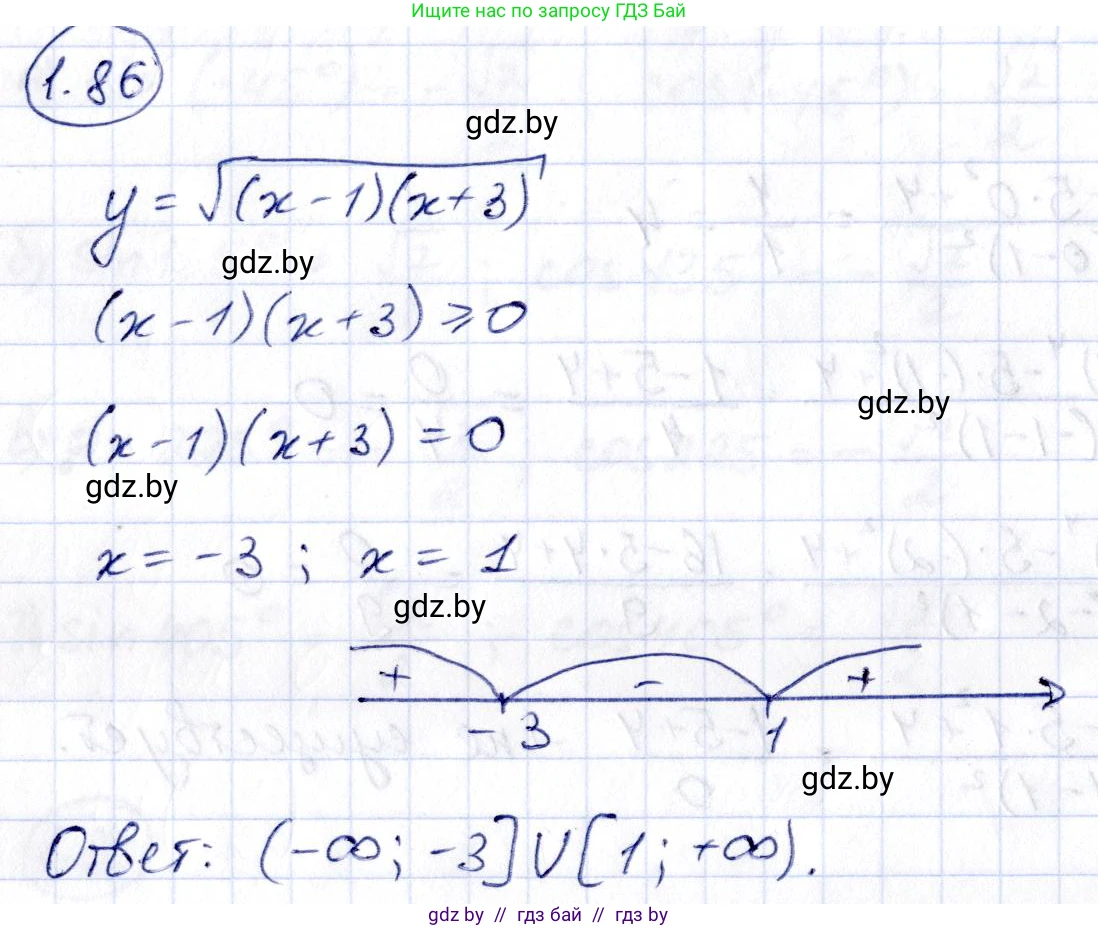 Ищите нас по запросу ГДЗ Бай
1.86
gdz.by
y = √(x-1)(x+3)
gdz.by
(x-1)(x+3)⩾0
gdz.by
(x-1)(x+3) = 0
gdz.by
x = -3 ; x = 1
gdz.by
+ - +
-3 1
gdz.by
Ответ: (-∞; -3]∪[1; +∞).
gdz by // гдз бай // гдз by